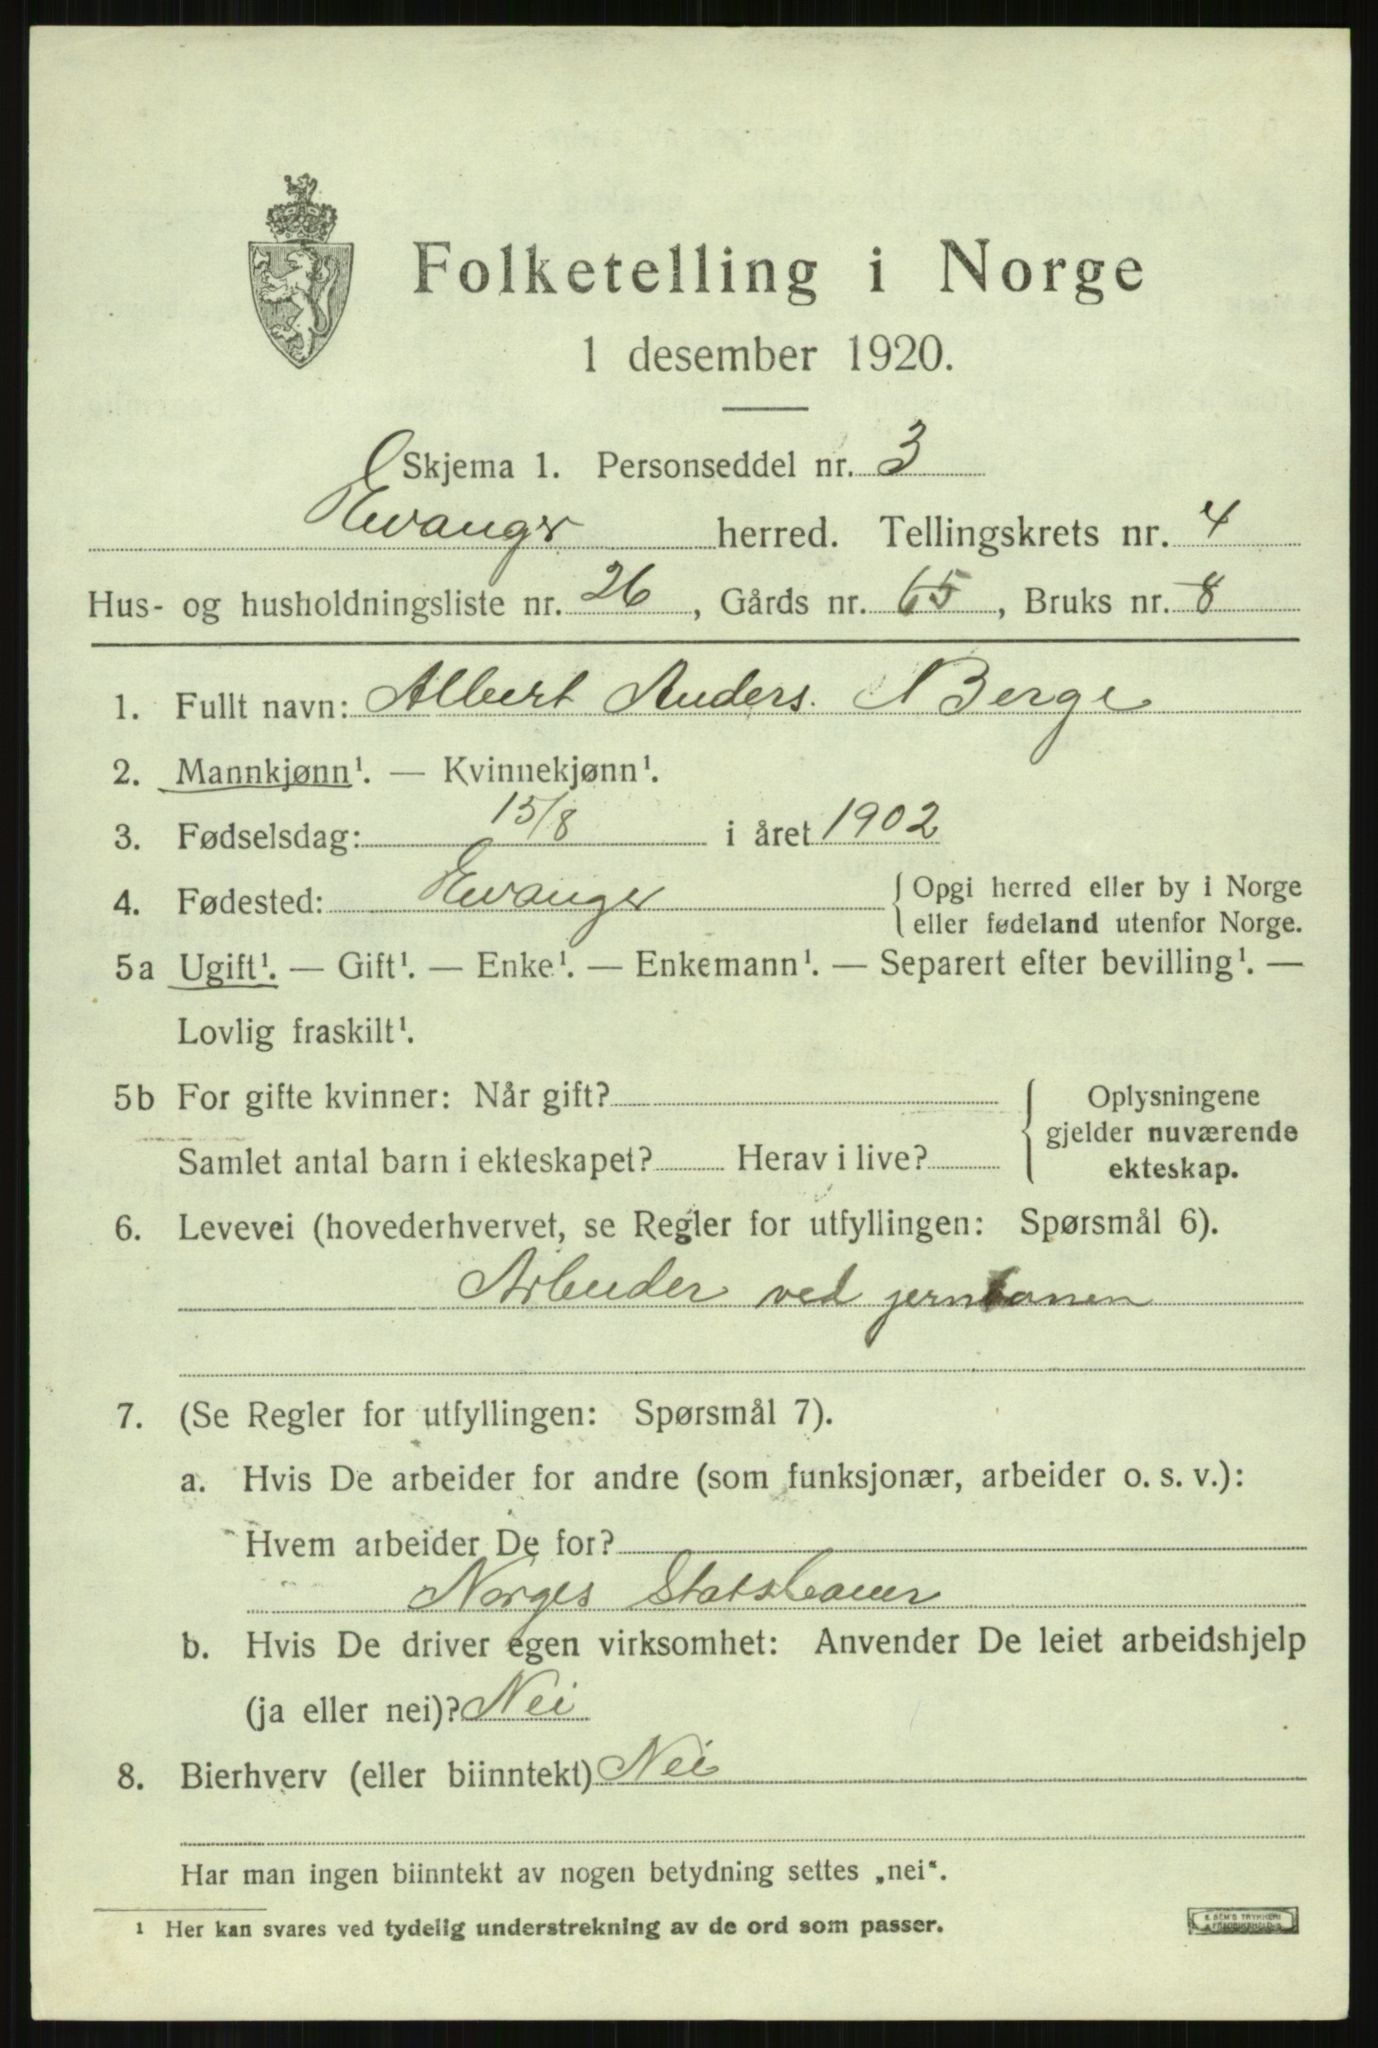 Folketelling i Norge
1 desember 1920.
Skjema 1. Personseddel nr. 3
Evanger herred. Tellingskrets nr. 4
Hus- og husholdningsliste nr. 26, Gårds nr. 65, Bruks nr. 8
1. Fullt navn: Albert Anders. N Berge
2. Mannkjønn¹. — Kvinnekjønn¹.
3. Fødselsdag: 15/8 i året 1902
4. Fødested: Evanger { Opgi herred eller by i Norge
eller fødeland utenfor Norge.
5a Ugift¹. — Gift¹. — Enke¹. — Enkemann¹. — Separert efter bevilling¹. —
Lovlig fraskilt¹.
5b For gifte kvinner: Når gift?
Samlet antal barn i ekteskapet? Herav i live?
Oplysningene
gjelder nuværende
ekteskap.
6. Levevei (hovederhvervet, se Regler for utfyllingen: Spørsmål 6).
Arbeider ved jernbanen
7. (Se Regler for utfyllingen: Spørsmål 7).
a. Hvis De arbeider for andre (som funksjonær, arbeider o. s. v.):
Hvem arbeider De for?
Norges Statsbaner
b. Hvis De driver egen virksomhet: Anvender De leiet arbeidshjelp
(ja eller nei)? Nei
8. Bierhverv (eller biinntekt) Nei
Har man ingen biinntekt av nogen betydning settes „nei“.
¹ Her kan svares ved tydelig understrekning av de ord som passer.